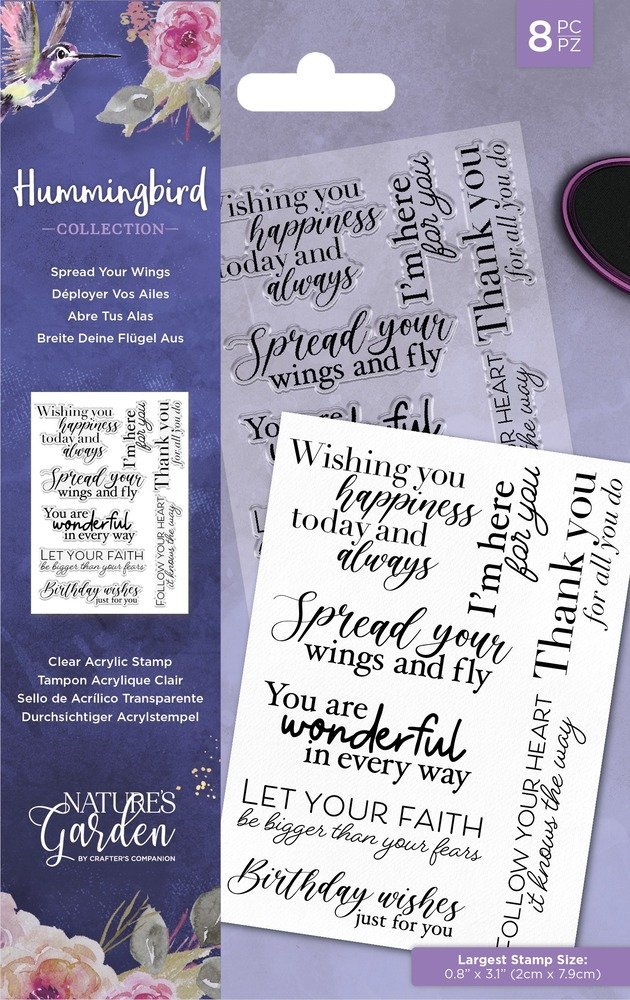 8 PC
PZ
Hummingbird
COLLECTION
Spread Your Wings
Déployer Vos Ailes
Abre Tus Alas
Breite Deine Flügel Aus
Wishing you
happiness
today and
always
I'm here
for you
Thank you
for all you do
Spread your
wings and fly
You are
wonderful
in every way
FOLLOW YOUR HEART
it knows the way
LET YOUR FAITH
be bigger than your fears
Birthday wishes
just for you
Clear Acrylic Stamp
Tampon Acrylique Clair
Sello de Acrílico Transparente
Durchsichtiger Acrylstempel
NATURE'S
Garden
BY CRAFTER'S COMPANION
Wishing you
happiness
today and
always
I'm here
for you
Thank you
for all you do
Spread your
wings and fly
HEART
the way
Wishing you
happiness
today and
always
I'm here
for you
Thank you
for all you do
Spread your
wings and fly
You are
wonderful
in every way
FOLLOW YOUR HEART
it knows the way
LET YOUR FAITH
be bigger than your fears
Birthday wishes
just for you
Largest Stamp Size:
0.8" x 3.1" (2cm x 7.9cm)